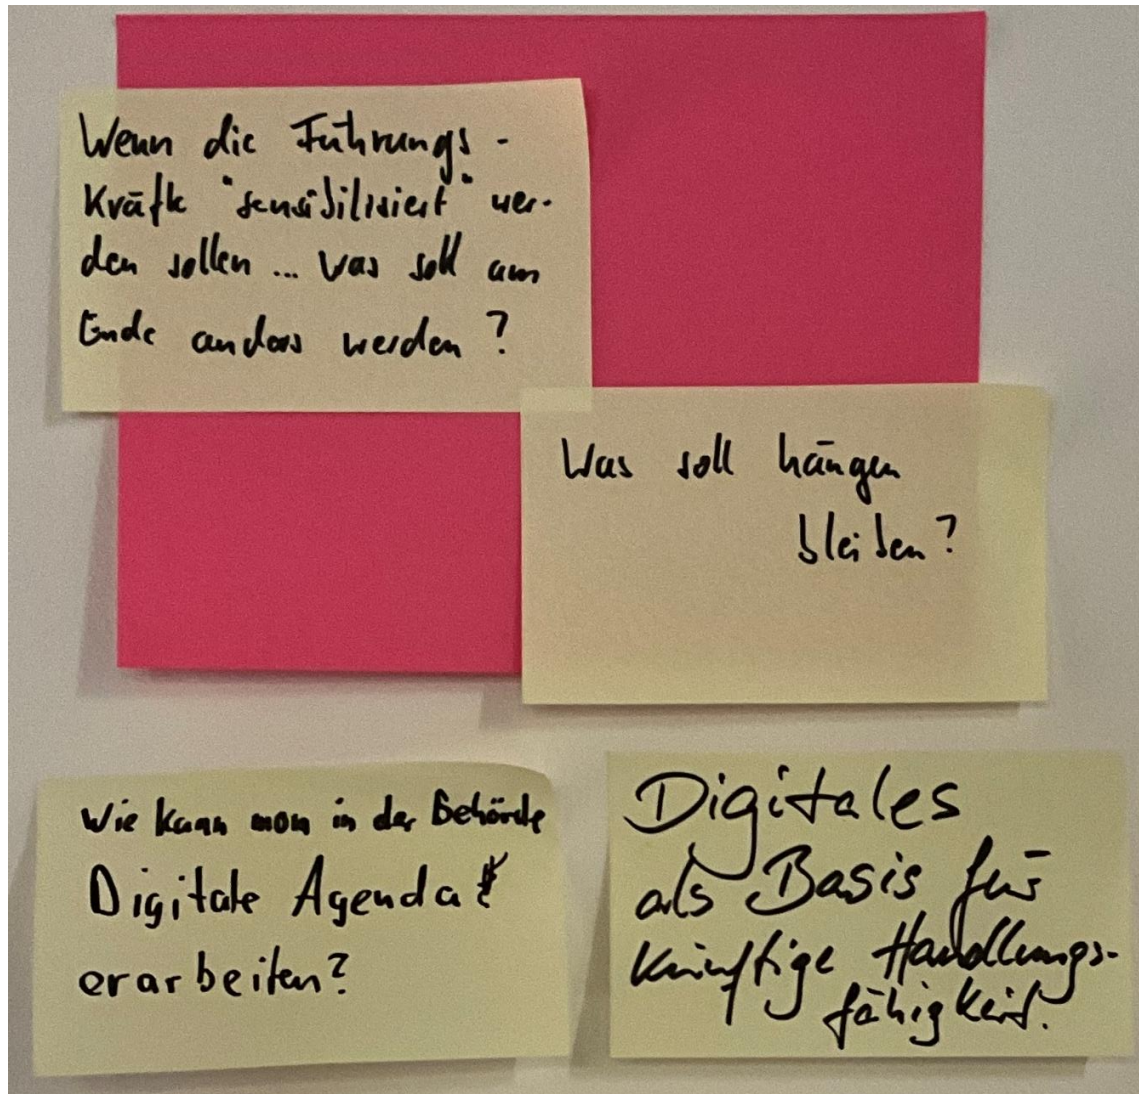 Wenn die Führungs-
kräfte "sensibilisiert" wer-
den sollen ... was soll am
Ende anders werden?
Was soll hängen
bleiben?
Wie kann man in der Behörde
Digitale Agenda
erarbeiten?
Digitales
als Basis für
künftige Handlungs-
fähigkeit.